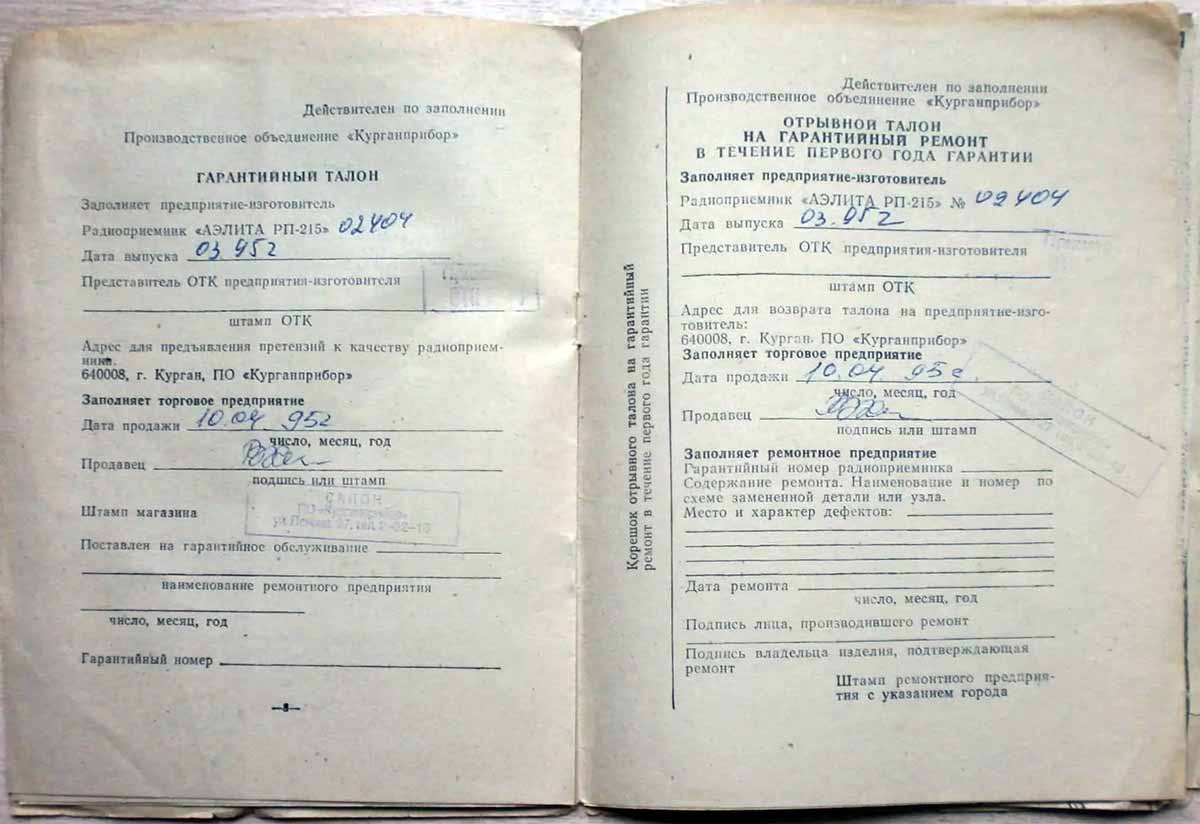 Действителен по заполнении
Производственное объединение «Курганприбор»
ГАРАНТИЙНЫЙ ТАЛОН
Заполняет предприятие-изготовитель
Радиоприемник «АЭЛИТА РП-215» 02404
Дата выпуска 03 95г
Представитель ОТК предприятия-изготовителя
штамп ОТК
Адрес для предъявления претензий к качеству радиоприем-
ника.
640008, г. Курган, ПО «Курганприбор»
Заполняет торговое предприятие
Дата продажи 10.04 95г
число, месяц, год
Продавец
подпись или штамп
САЛОН
ПО «Курганприбор»
Штамп магазина
Поставлен на гарантийное обслуживание
наименование ремонтного предприятия
число, месяц, год
Гарантийный номер
—8—
Корешок отрывного талона на гарантийный
ремонт в течение первого года гарантии
Действителен по заполнении
Производственное объединение «Курганприбор»
ОТРЫВНОЙ ТАЛОН
НА ГАРАНТИЙНЫЙ РЕМОНТ
В ТЕЧЕНИЕ ПЕРВОГО ГОДА ГАРАНТИИ
Заполняет предприятие-изготовитель
Радиоприемник «АЭЛИТА РП-215» № 02404
Дата выпуска 03.95г
Представитель ОТК предприятия-изготовителя
штамп ОТК
Адрес для возврата талона на предприятие-изго-
товитель:
640008, г. Курган, ПО «Курганприбор»
Заполняет торговое предприятие
Дата продажи 10.04 95г
число, месяц, год
Продавец
подпись или штамп
Заполняет ремонтное предприятие
Гарантийный номер радиоприемника
Содержание ремонта. Наименование и номер по
схеме замененной детали или узла.
Место и характер дефектов:
Дата ремонта
число, месяц, год
Подпись лица, производившего ремонт
Подпись владельца изделия, подтверждающая
ремонт
Штамп ремонтного предприя-
тия с указанием города